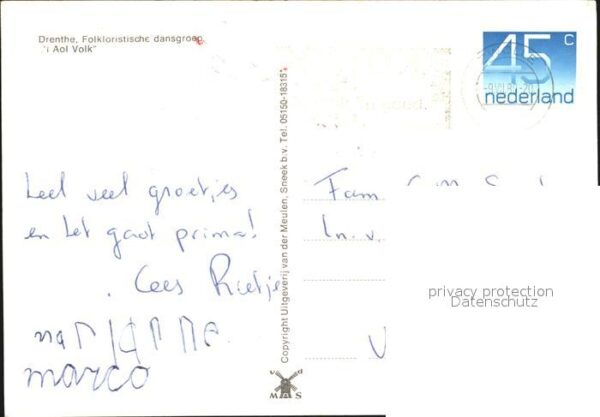 Drenthe, Folkloristische dansgroep,
"i Aol Volk"
45 c
nederland
Copyright Uitgeverij van der Meulen, Sneek b.v. Tel. 05150-18315*
heel veel groetjes
en het gaat prima!
Cees Rietje
marianne
marco
Fam
In. v.
V
privacy protection
Datenschutz
MAS